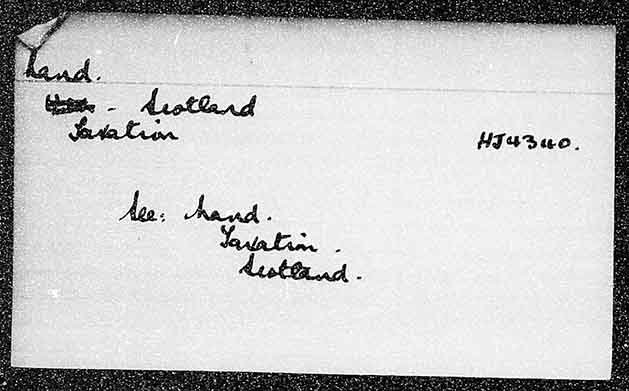 Land.
- Scotland
Taxation HJ4340.
See: Land.
Taxation.
Scotland.